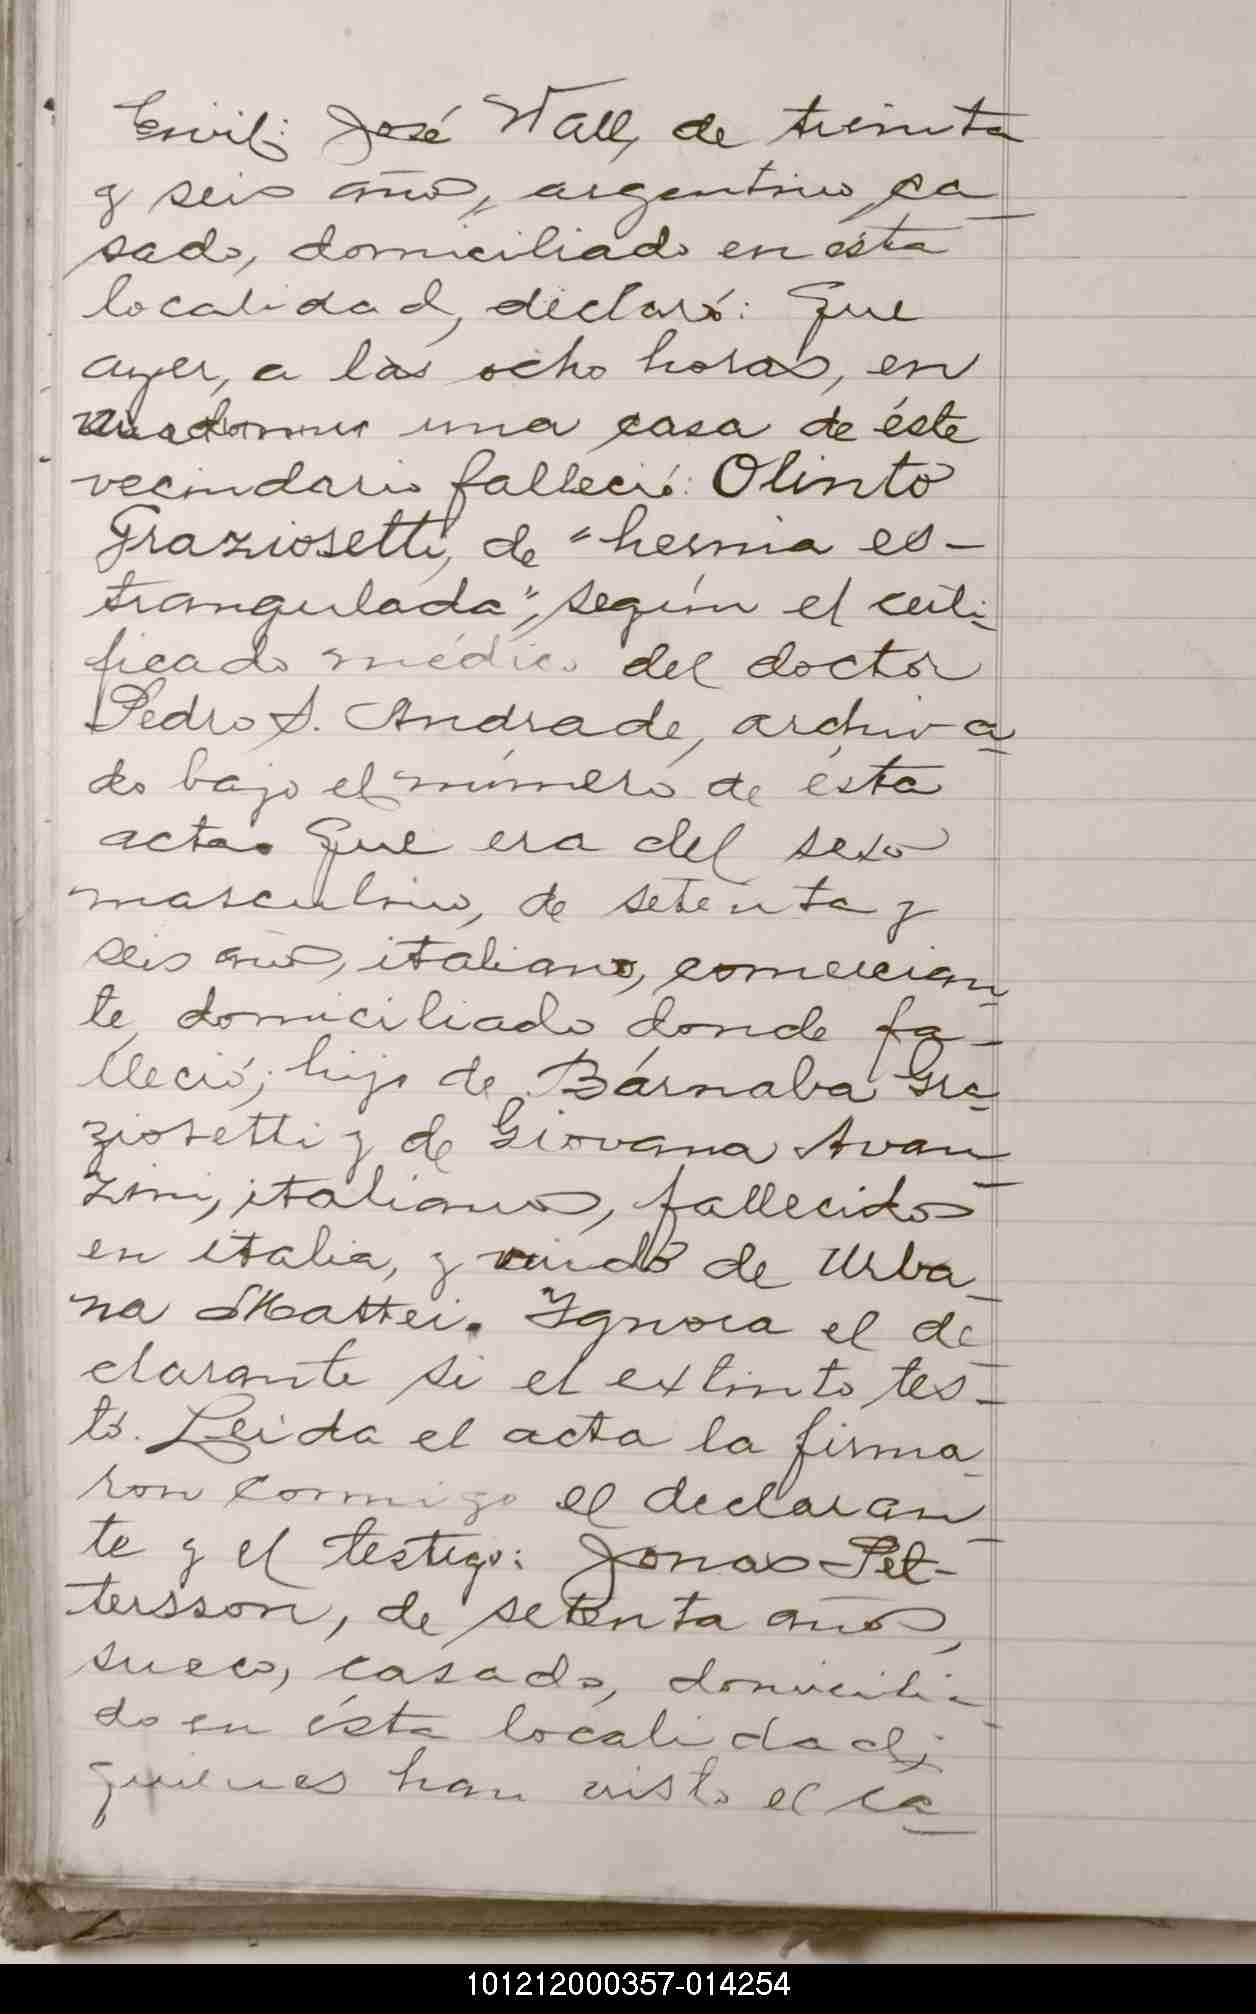 Civil: José Wall, de treinta
y seis años, argentino, ca-
sado, domiciliado en esta
localidad, declaró: Que
ayer, a las ocho horas, en
una casa de éste
vecindario falleció: Olinto
Graziosetti, de "hernia es-
trangulada", según el certi-
ficado médico del doctor
Pedro S. Andrade, archiva-
do bajo el número de ésta
acta. Que era del sexo
masculino, de setenta y
seis años, italiano, comercian-
te, domiciliado donde fa-
lleció; hijo de Bárnaba Gra-
ziosetti y de Giovana Avan-
zini, italianos, fallecidos
en italia, y viudo de Urba-
na Mattei. Ignora el de-
clarante si el extinto tes-
tó. Leida el acta la firma-
ron conmigo el declaran-
te y el testigo: Jonas Pet-
tersson, de setenta años,
sueco, casado, domicilia-
do en ésta localidad;
quienes han visto el ca-
101212000357-014254